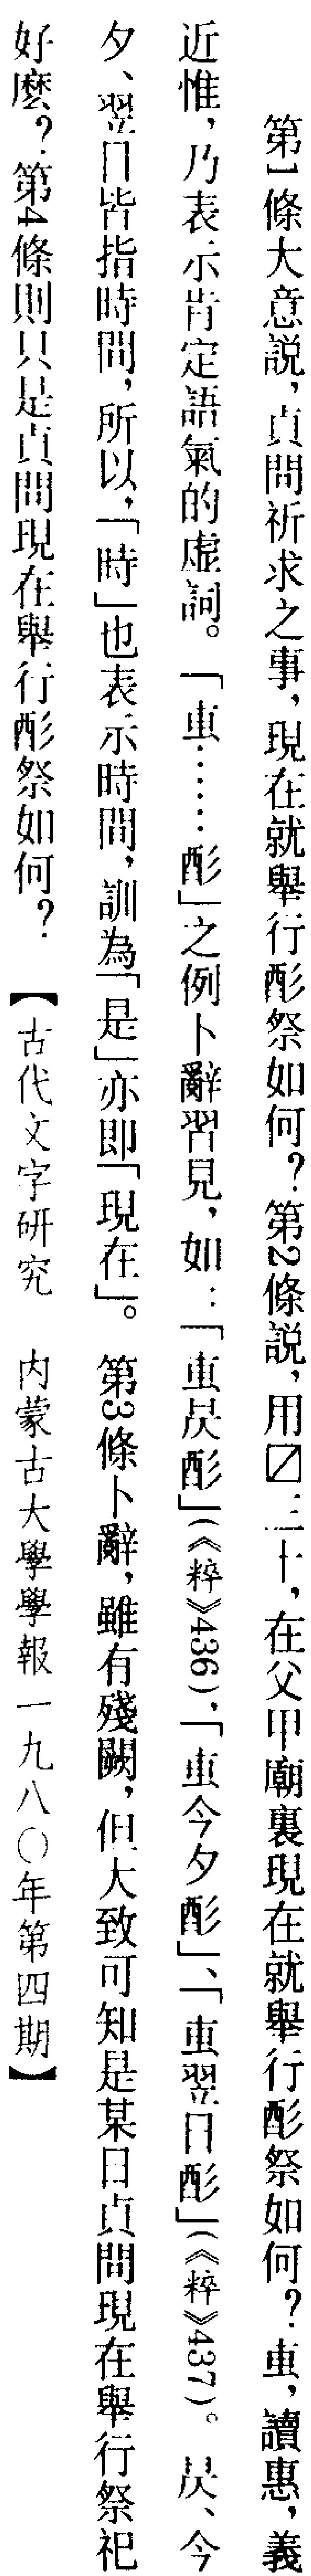 第1條大意説，貞問祈求之事，現在就舉行酚祭如何？第2條説，用〼三十，在父甲廟裏現在就舉行酚祭如何？叀，讀惠，義
近惟，乃表示肯定語氣的虛詞。「叀……酚」之例卜辭習見，如：「叀昃酚」（《粹》436）、「叀今夕酚」、「叀翌日酚」（《粹》437）。昃、今
夕、翌日皆指時間，所以，「時」也表示時間，訓為「是」亦即「現在」。第3條卜辭，雖有殘闕，但大致可知是某日貞問現在舉行祭祀
好麽？第4條則只是貞問現在舉行酚祭如何？【古代文字研究　内蒙古大學學報一九八〇年第四期】